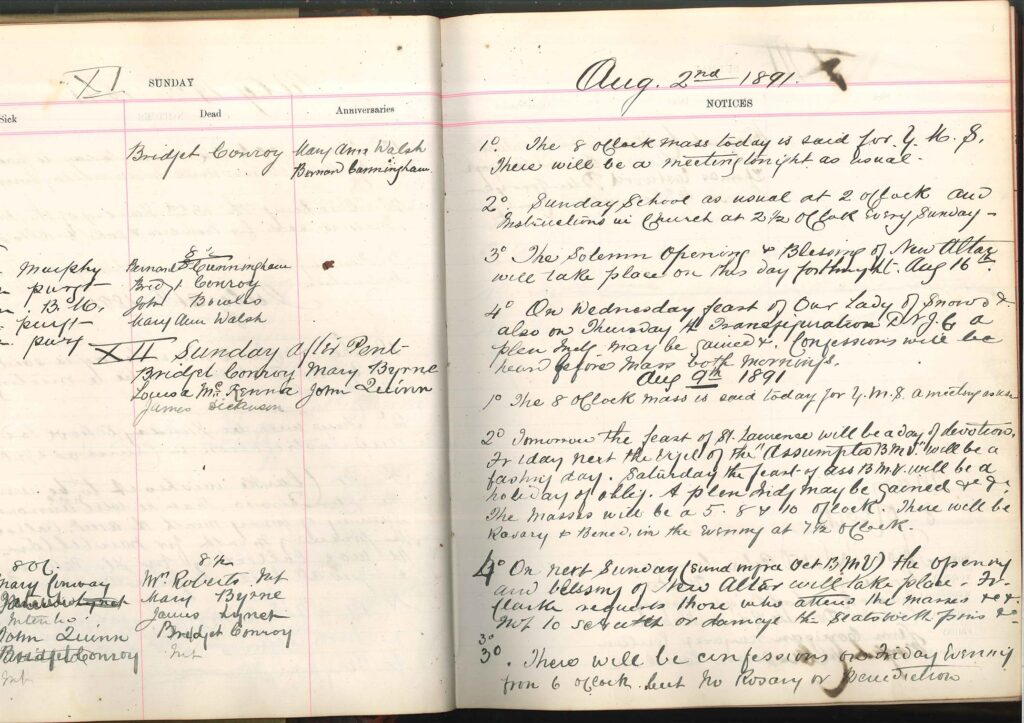 XI SUNDAY
Sick Dead Anniversaries
Bridget Conroy Mary Ann Walsh
Bernard Cunningham
Murphy Bernard Cunningham
purgt Bridgt Conroy
B.M. John Bowles
purgt Mary Ann Walsh
purg
XII Sunday after Pent-
Bridget Conroy Mary Byrne
Louisa McKenna John Quinn
James Dickinson
8 Oc. 8th
Mary Conway Wm Roberts Int
Mary Byrne
James Lynet
John Quinn Bridget Conroy
Bridget Conroy Int
Int
Aug. 2nd 1891.
NOTICES
1o The 8 oClock mass today is said for Y. M. S.
There will be a meeting tonight as usual.
2o Sunday School as usual at 2 oClock and
Instructions in Church at 2 1/2 oClock Every Sunday-
3o The Solemn Opening & Blessing of New Altar
will take place on this day fortnight. Aug 16th
4o On Wednesday feast of Our Lady of Snows &
also on Thursday the Transfiguration a
plen Indg may be gained &. Confessions will be
heard before Mass both mornings.
Aug 9th 1891
1o The 8 oClock Mass is said today for Y.M.S. a meeting as usu
2o Tomorrow the feast of St. Lawrence will be a day of devotion.
Friday next the Vigil of the Assumptio B.M.V. will be a
fasting day. Saturday the feast of Ass B.M.V. will be a
holiday of oblig. A plen Indg may be gained &c &
The Masses will be a 5. 8 & 10 oClock. There will be
Rosary & Bened. in the Evening at 7 1/2 oClock.
4o On next Sunday (Sund infra Oct B.M.V) the opening
and blessing of New Altar will take place. Fr
requests those who attend the Masses &c.
Not to scratch or damage the Seats with pins &c
3o
3o. There will be confessions on Friday Evening
from 6 oClock. but No Rosary or Benediction